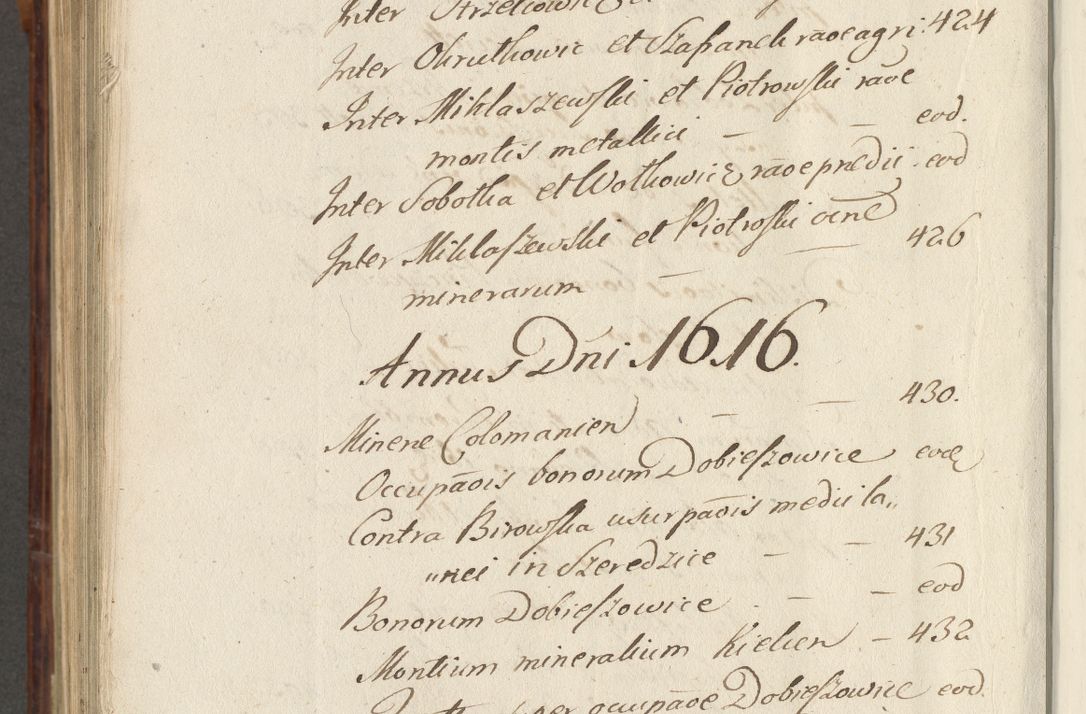 Inter Strzelcowic
Inter Okrutkowic et Szafranek raõe agri 424
Inter Miklaszewski et Piotrowski raõe
montis metallici — — eod.
Inter Sobotka et Wolkowicz raõe prædii. eod
Inter Miklaszewski et Piotroski occñe
minerarum — — 426
Annus Dni 1616.
Minerae Colomanien — — 430.
Occupaõis bonorum Dobieszowice eod
Contra Birowska usurpaõis medii la„
„nei in Szeredzice — — 431
Bonorum Dobieszowice . — — eod
Montium mineralium Kielcen — 432
per occupaõe Dobieszowice eod.